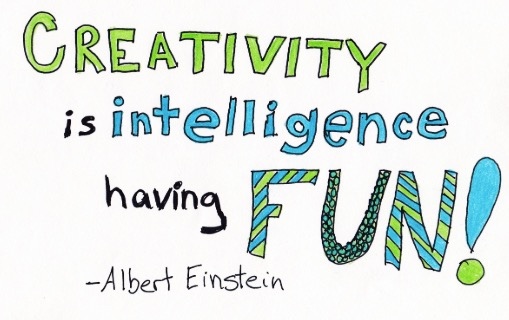 CREATIVITY
is intelligence
having FUN!
-Albert Einstein